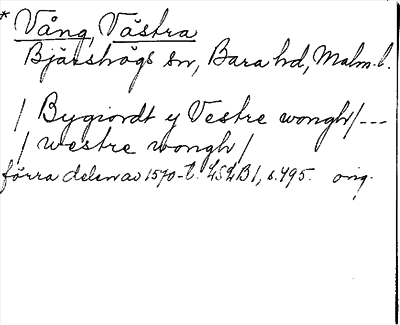 * Vång, Västra
Bjärshögs sn, Bara hd, Malm. l.
/ Bygiordt y Vestre wongh / ---
/ westre wongh /
förra delen av 1570-t. LSLB 1, s. 495. orig.